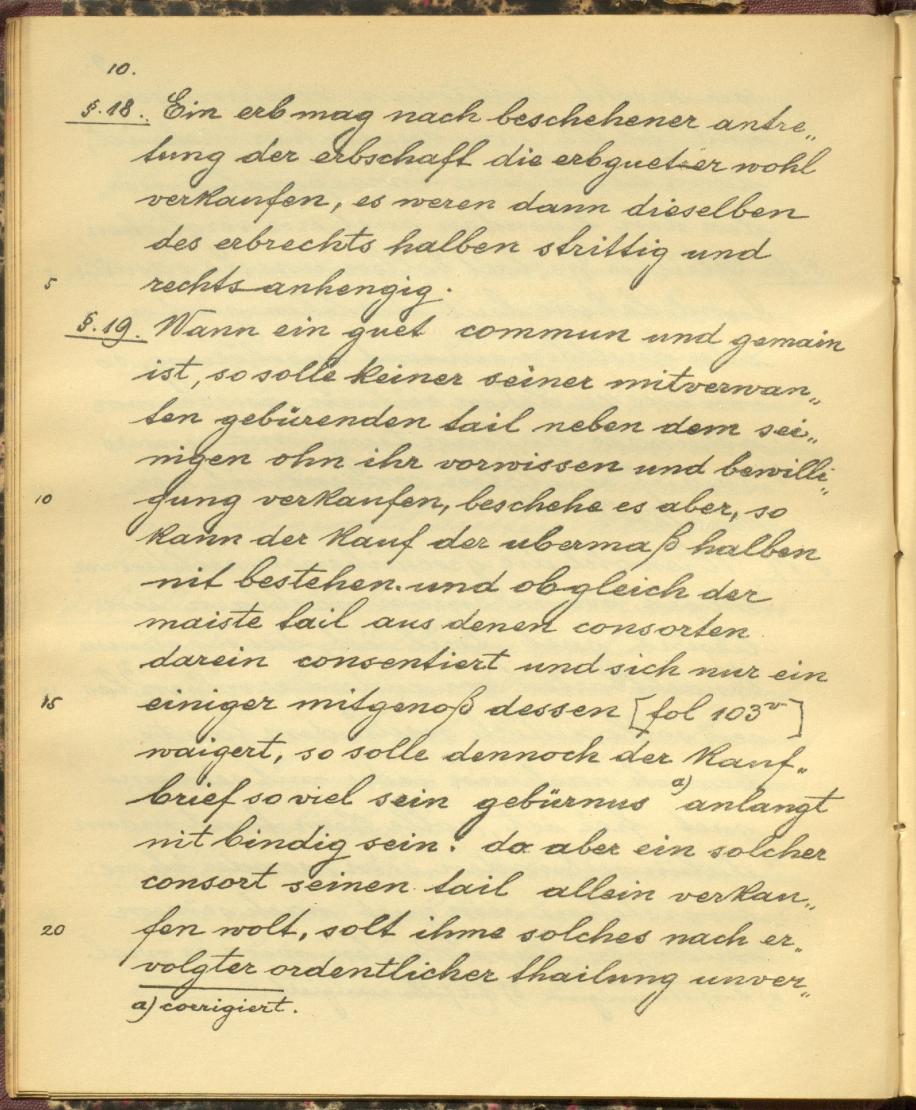 10.
§.18. Ein erb mag nach beschehener antre„
tung der erbschaft die erbgueter wohl
verkaufen, es weren dann dieselben
des erbrechts halben strittig und
5 rechts anhengig.
§.19. Wann ein guet commun und gemain
ist, so solle keiner seiner mitverwan„
ten gebürenden tail neben dem sei„
nigen ohn ihr vorwissen und bewilli„
10 gung verkaufen, beschehe es aber, so
kann der kauf der ubermaß halben
nit bestehen. und obgleich der
maiste tail aus denen consorten
darein consentiert und sich nur ein
15 einiger mitgenoß dessen [fol 103v]
waigert, so solle dennoch der kauf„
brief so viel sein gebürnus a) anlangt
nit bindig sein: da aber ein solcher
consort seinen tail allein verkau„
20 fen wolt, solt ihme solches nach er„
volgter ordentlicher thailung unver„
a) corrigiert.